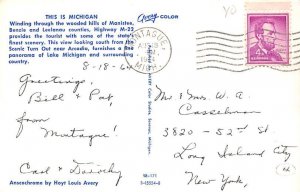 THIS IS MICHIGAN
Winding through the wooded hills of Manistee,
Benzie and Leelanau counties, Highway M-22
provides the tourist with some of the state's
finest scenery. This view looking south from the
Scenic Turn Out near Arcadia, furnishes a fine
panorama of Lake Michigan and surrounding
country.
Avery COLOR
8-18-64
Greetings,
Bill & Pat
from
Montague!
Carl & Dorothy
Anscochrome by Hoyt Louis Avery
Avery Color Studio, Seamer, Michigan.
MONTAGUE
AUG
MICH.
Mr & Mrs W. A.
Casselman
3820 - 52nd St
Long Island City
New York,